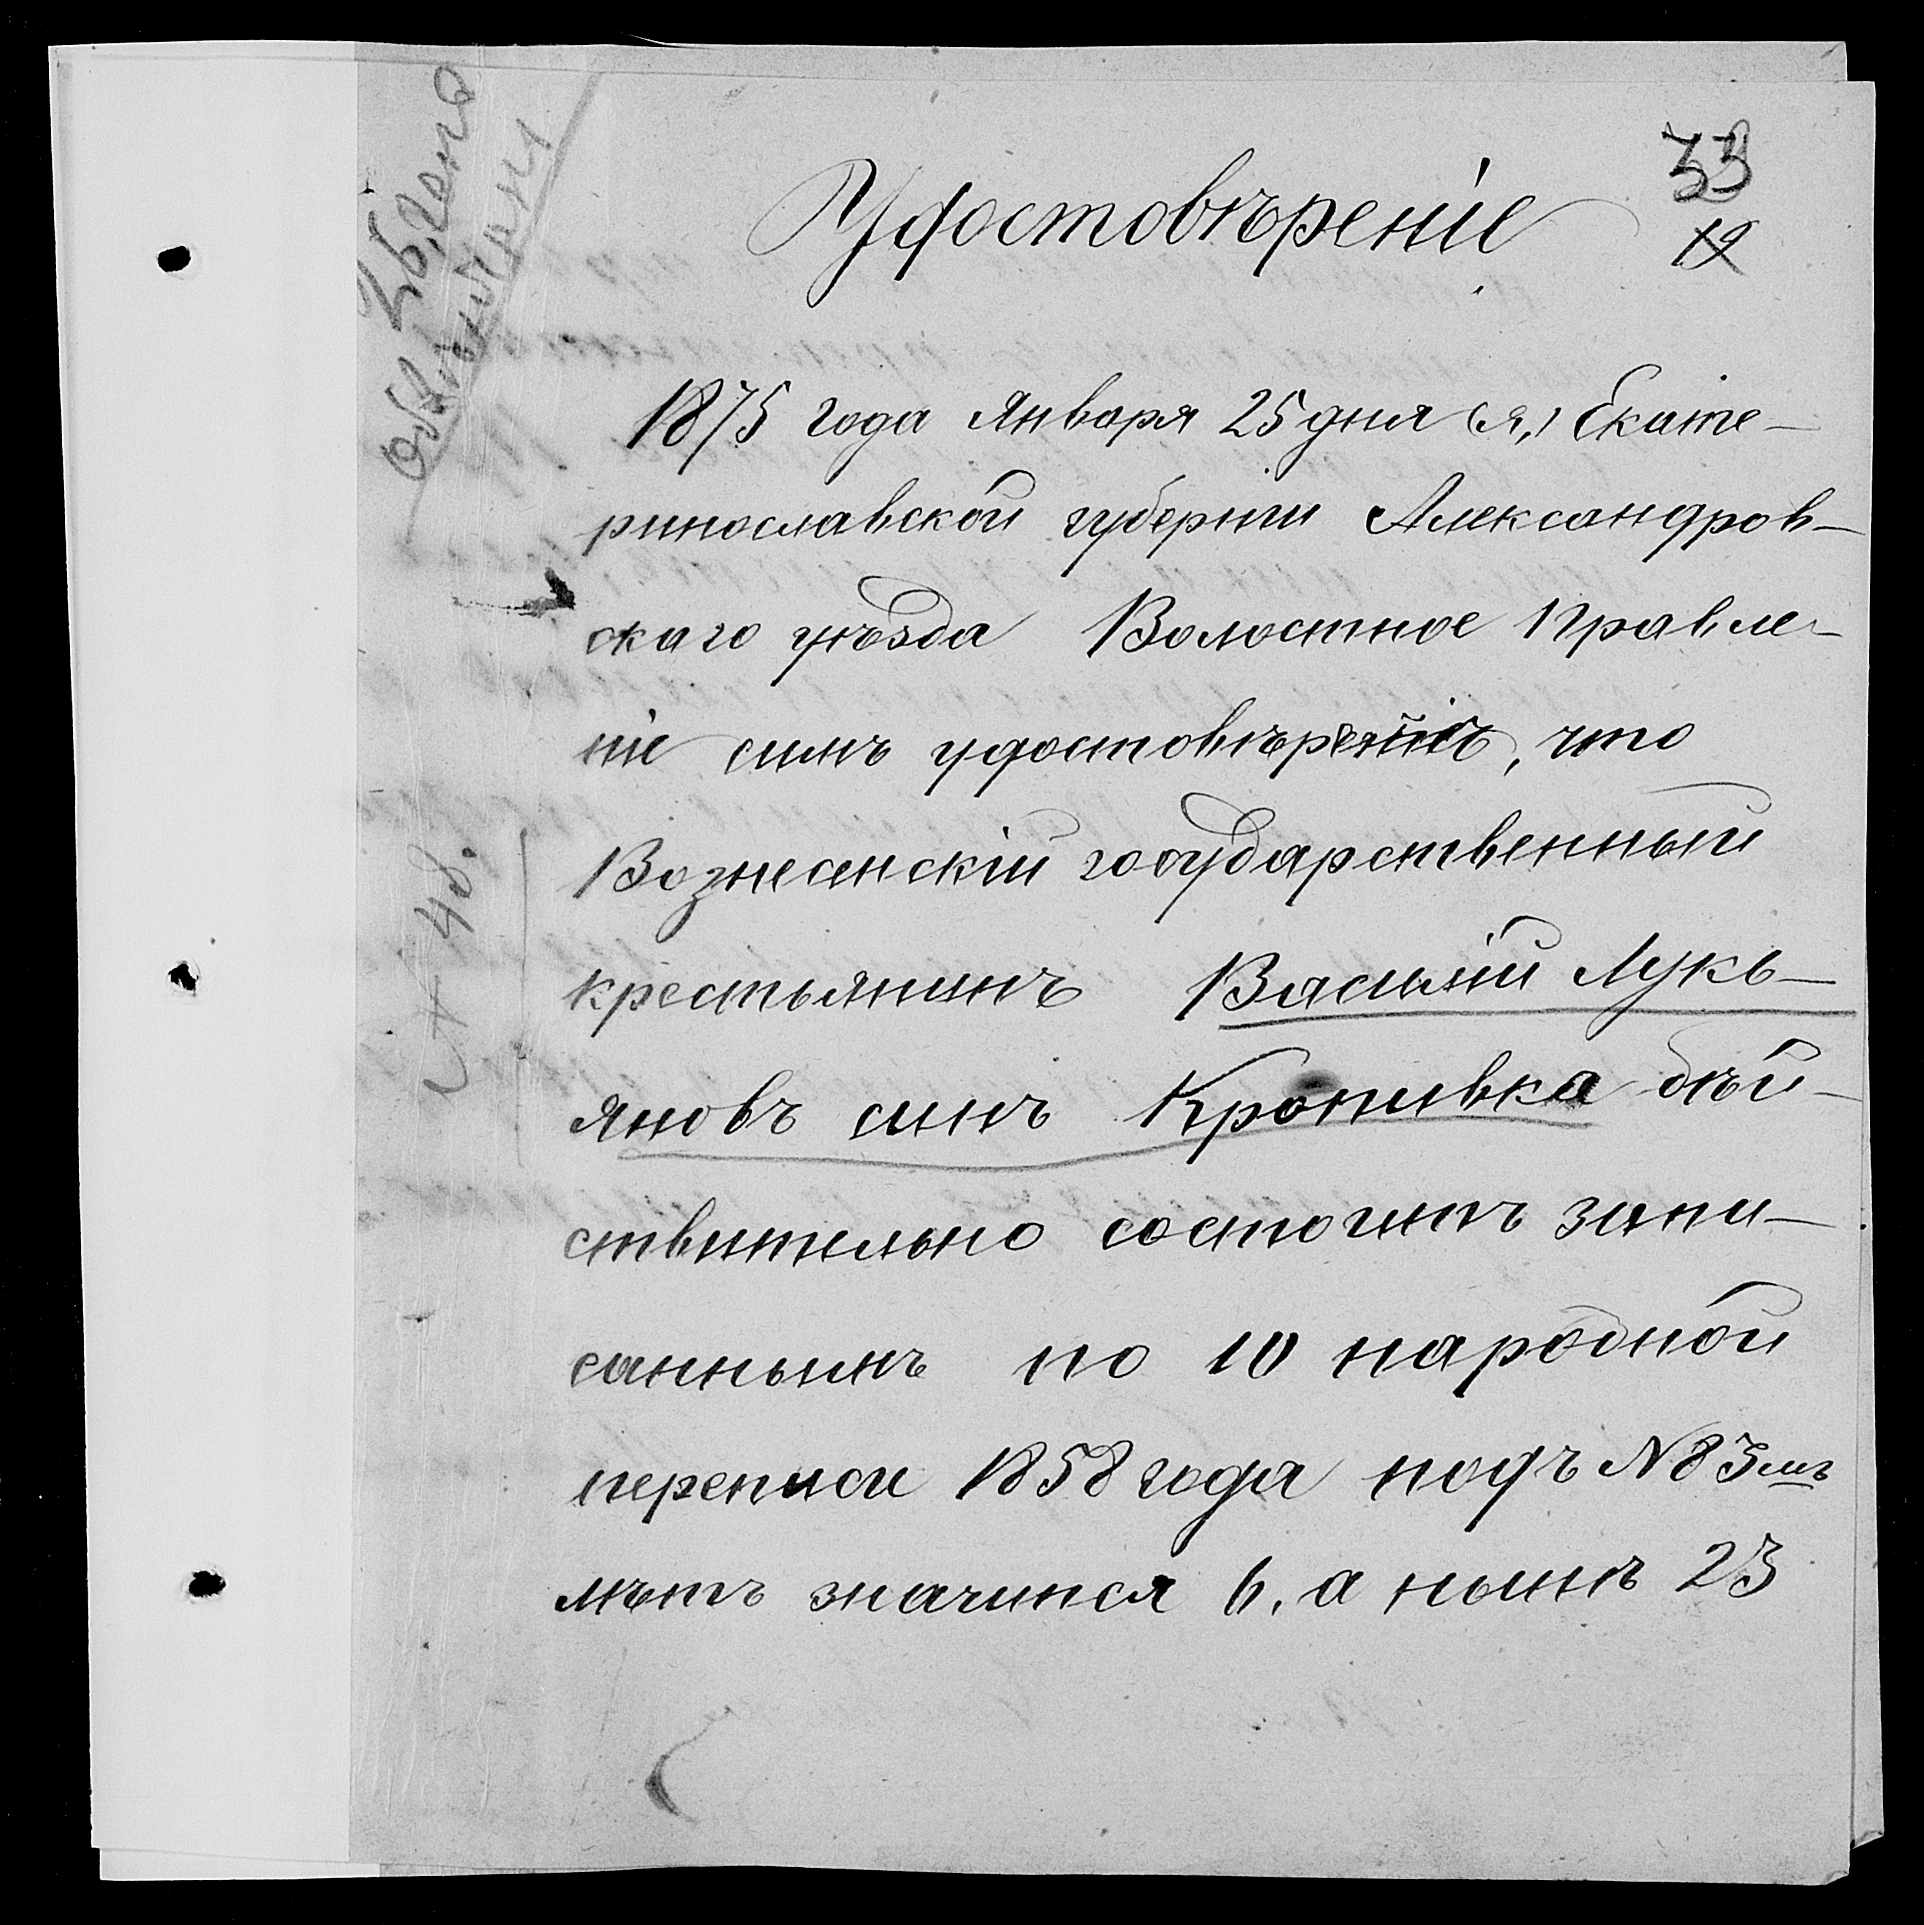 33
19
Удостовѣреніе
1875 года Января 25 дня (я,) Екате-
ринославской губерніи Александров-
скаго уѣзда Волостное Правле-
ніе симъ удостовѣреніе, что
Вознесенскій государственный
крестьянинъ Василій Лукь-
яновъ синъ Кропивка дѣй-
ствительно состоитъ запи-
саннымъ по 10 народной
переписи 1858 года подъ N 83мъ
лѣтъ значился 6, а нынѣ 23
обвѣнчани
N 48.